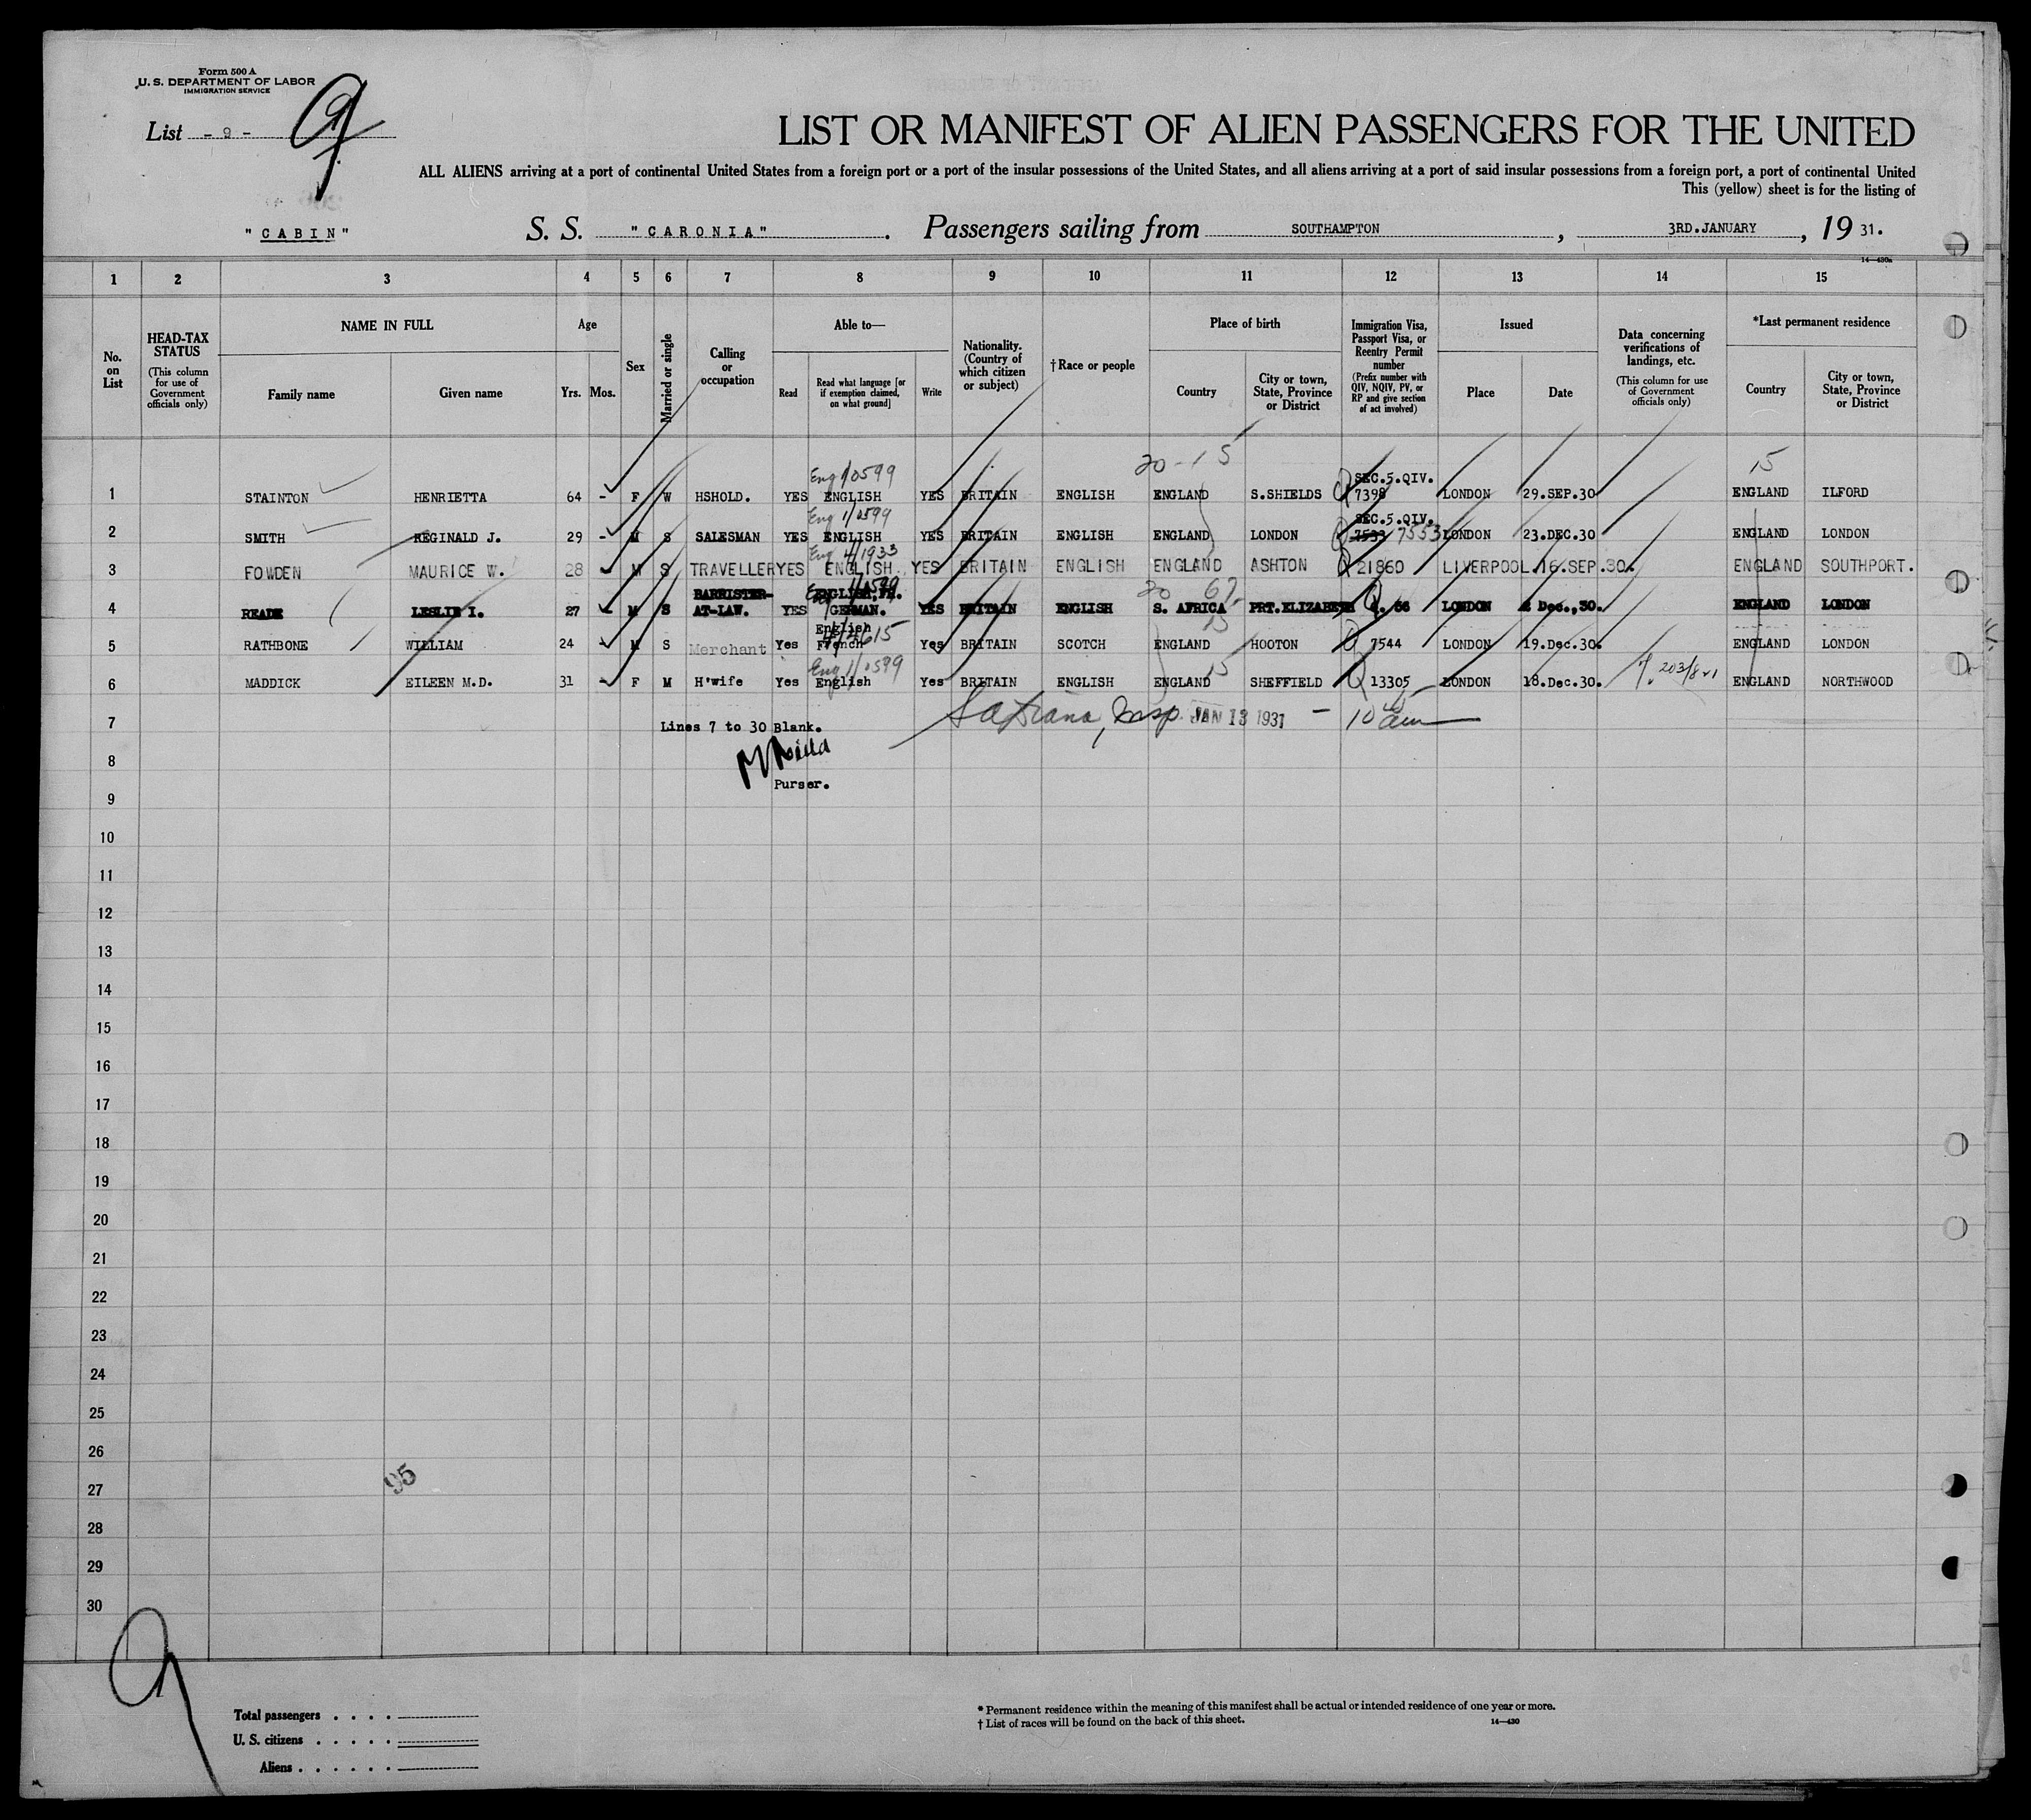 Form 500 A
U. S. DEPARTMENT OF LABOR
IMMIGRATION SERVICE
List - 9 - 9
LIST OR MANIFEST OF ALIEN PASSENGERS FOR THE UNITED
ALL ALIENS arriving at a port of continental United States from a foreign port or a port of the insular possessions of the United States, and all aliens arriving at a port of said insular possessions from a foreign port, a port of continental United
This (yellow) sheet is for the listing of
"CABIN" S. S. "CARONIA". Passengers sailing from SOUTHAMPTON, 3RD.JANUARY, 19 31.
14—430a
1 2 3 4 5 6 7 8 9 10 11 12 13 14 15
No. on List
HEAD-TAX STATUS (This column for use of Government officials only)
NAME IN FULL
Family name Given name
Age
Yrs. Mos.
Sex
Married or single
Calling or occupation
Able to—
Read Read what language [or if exemption claimed, on what ground] Write
Nationality. (Country of which citizen or subject)
†Race or people
Place of birth
Country City or town, State, Province or District
Immigration Visa, Passport Visa, or Reentry Permit number (Prefix number with QIV, NQIV, PV, or RP and give section of act involved)
Issued
Place Date
Data concerning verifications of landings, etc. (This column for use of Government officials only)
*Last permanent residence
Country City or town, State, Province or District
20-15 15
Eng 1/0599 SEC.5.QIV.
1 STAINTON HENRIETTA 64 - F W HSHOLD. YES ENGLISH YES BRITAIN ENGLISH ENGLAND S.SHIELDS Q 7398 LONDON 29.SEP.30 ENGLAND ILFORD
Eng 1/0599 SEC.5.QIV.
2 SMITH REGINALD J. 29 - M S SALESMAN YES ENGLISH YES BRITAIN ENGLISH ENGLAND LONDON Q 7533 7553 LONDON 23.DEC.30 ENGLAND LONDON
Eng 4/1933
3 FOWDEN MAURICE W. 28 - M S TRAVELLER YES ENGLISH YES BRITAIN ENGLISH ENGLAND ASHTON Q 21860 LIVERPOOL.16.SEP.30. ENGLAND SOUTHPORT.
BARRISTER- ENGLISH, FR. 20 67
4 READE LESLIE I. 27 - M S AT-LAW. YES GERMAN. YES BRITAIN ENGLISH S. AFRICA PRT.ELIZABETH LONDON Dec.,30. ENGLAND LONDON
English 15
5 RATHBONE WILLIAM 24 - M S Merchant Yes French Yes BRITAIN SCOTCH ENGLAND HOOTON Q 7544 LONDON 19.Dec.30. ENGLAND LONDON
Eng 1/0599 15 203/821
6 MADDICK EILEEN M.D. 31 - F M H'wife Yes English Yes BRITAIN ENGLISH ENGLAND SHEFFIELD Q 13305 LONDON 18.Dec.30. ENGLAND NORTHWOOD
7 Lines 7 to 30 Blank. Insp. JAN 13 1931 - 10 am
8
Purser.
9
10
11
12
13
14
15
16
17
18
19
20
21
22
23
24
25
26
27 95
28
29
30
9
Total passengers . . . .
U. S. citizens . . . . .
Aliens . . . . . .
* Permanent residence within the meaning of this manifest shall be actual or intended residence of one year or more.
† List of races will be found on the back of this sheet. 14—430